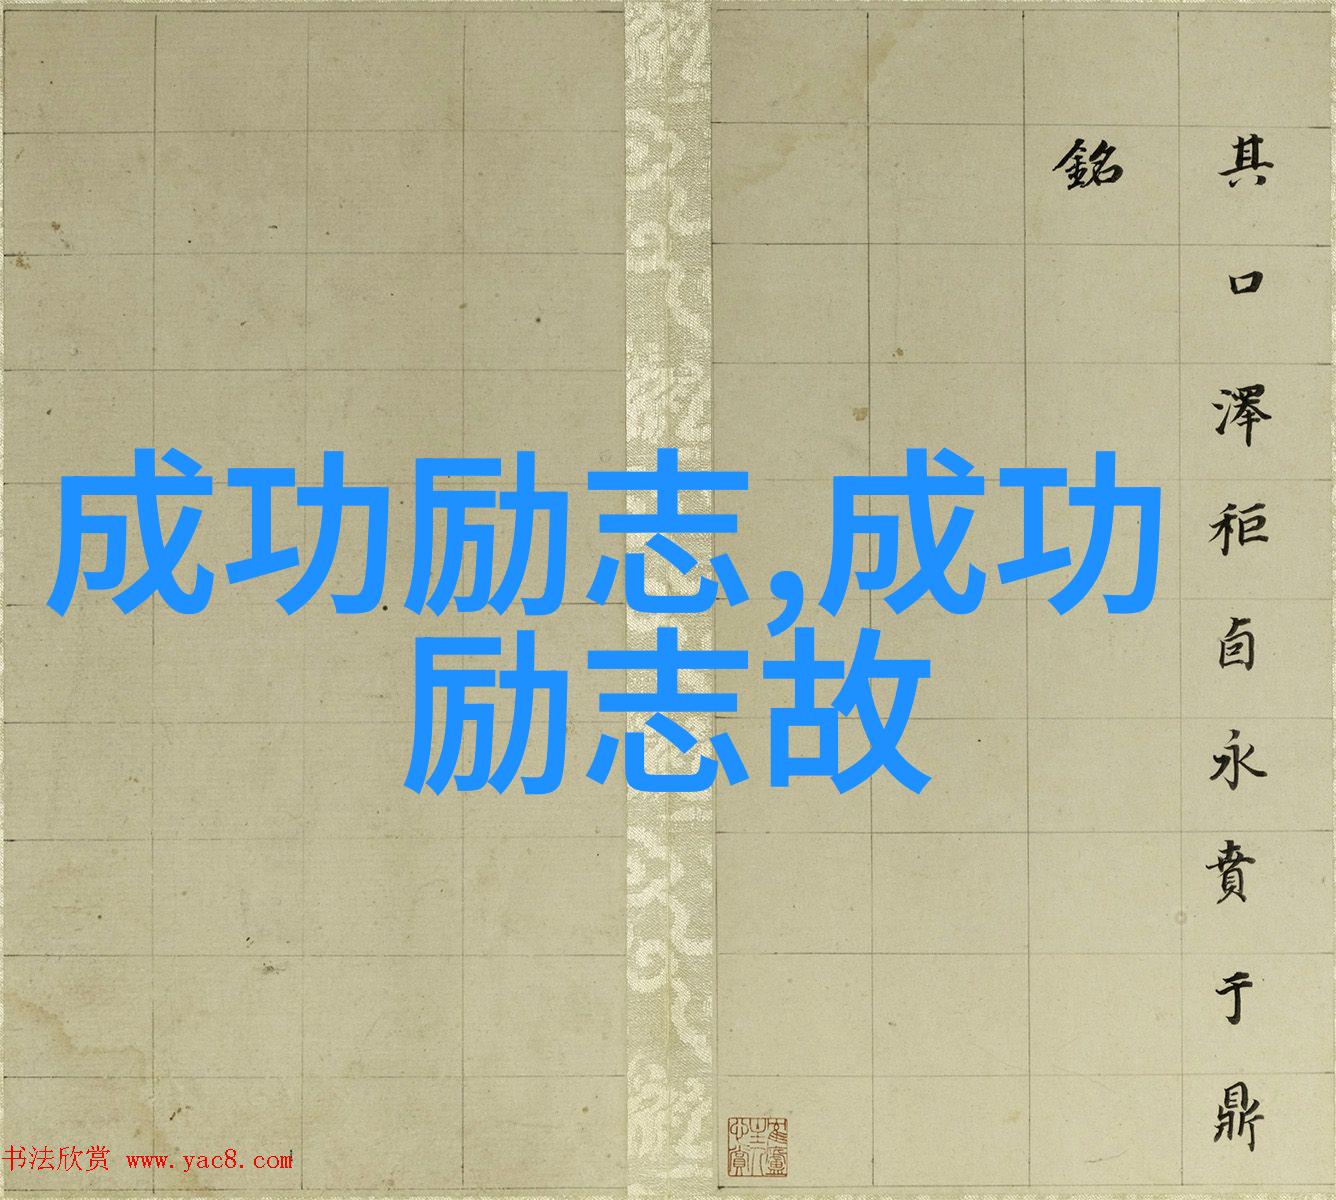 其口澤秬卣永賁于鼎
銘
成功励志,成功
励志故
书法欣赏 www.yac8.com